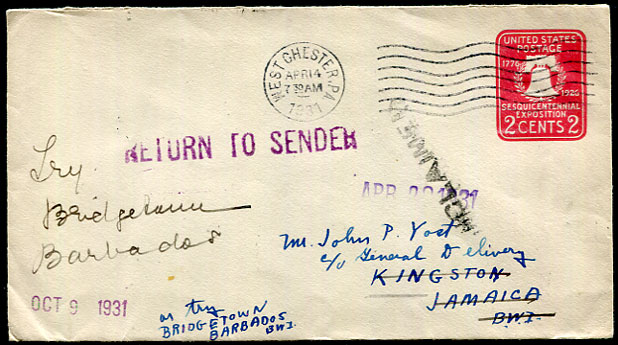 UNITED STATES
POSTAGE
1776 1926
SESQUICENTENNIAL
EXPOSITION
2 CENTS 2
WEST CHESTER, PA
APR 14
7 30 AM
1931
RETURN TO SENDER
Try
Bridgetown
Barbados
APR 1931
Mr. John P. Yost
c/o General Delivery
KINGSTON
JAMAICA
B.W.I.
OCT 9 1931
or try
BRIDGETOWN
BARBADOS
BWI.